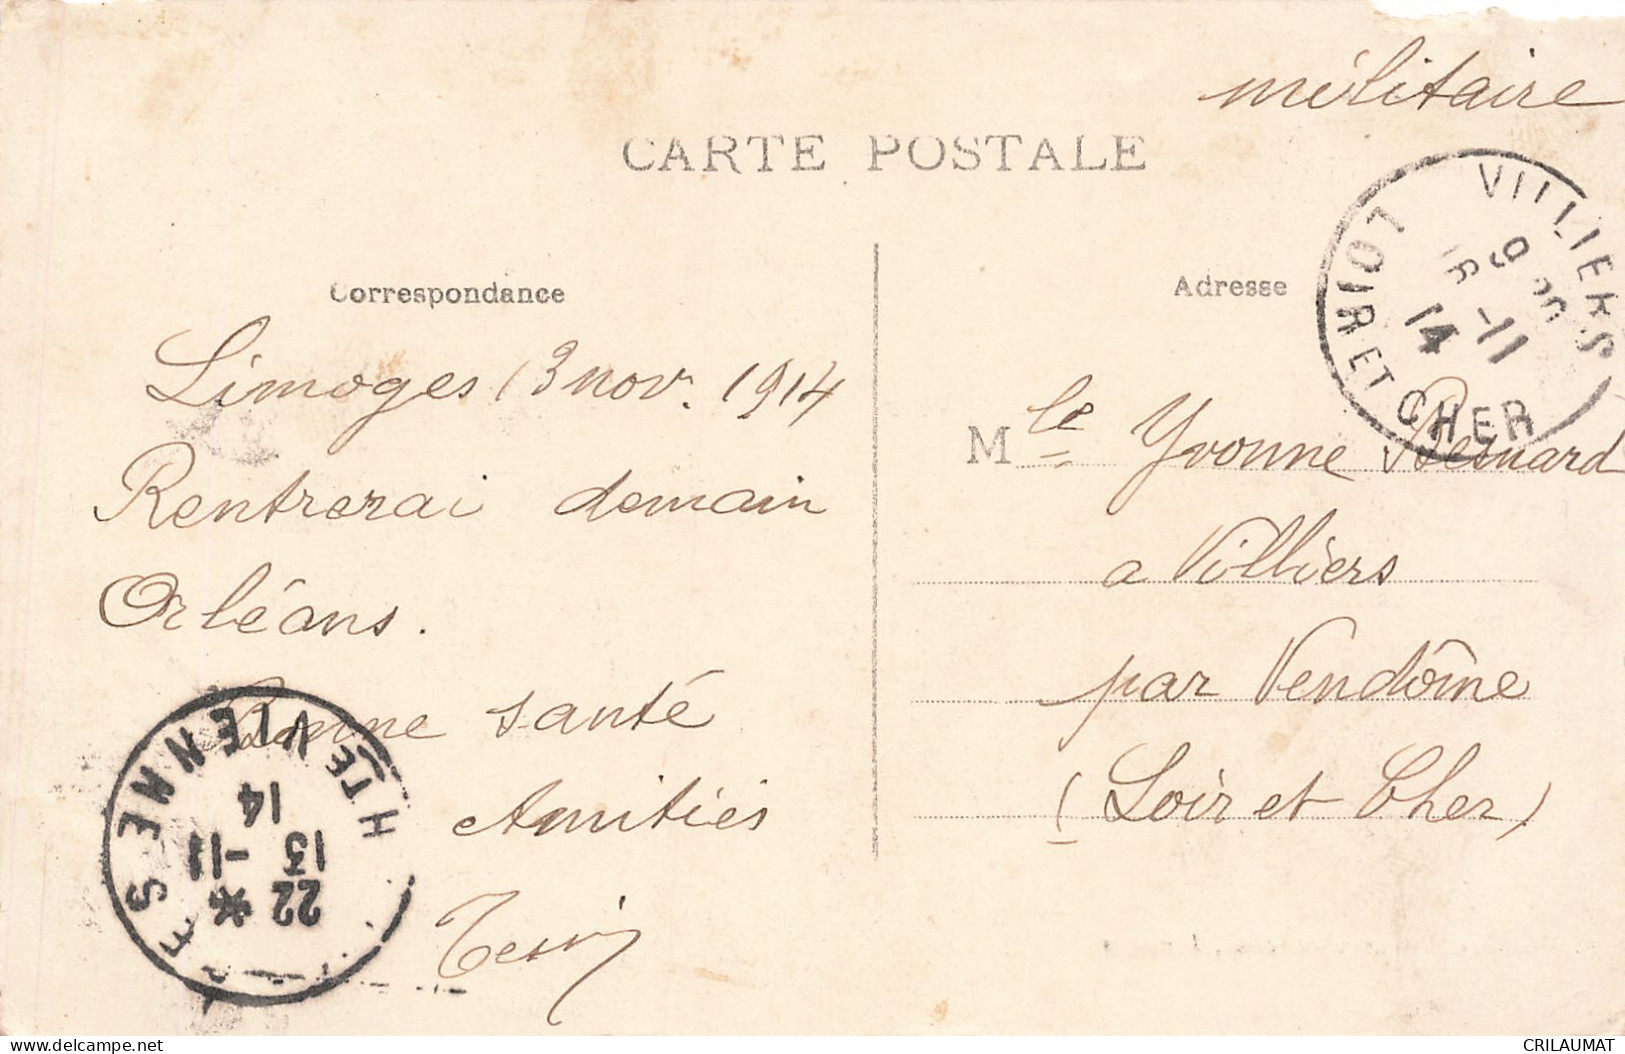 militaire
CARTE POSTALE
Correspondance
Limoges 13 nov. 1914
Rentrerai demain
Orléans.
Bonne santé
Amitiés
Adresse
VILLIERS
LOIR ET CHER
16 -11
14
Mlle Yvonne Besnard
a Villiers
par Vendôme
(Loir et Cher)
HTE VIENNE
22 *
13 -11
14
delcampe.net
CRILAUMAT